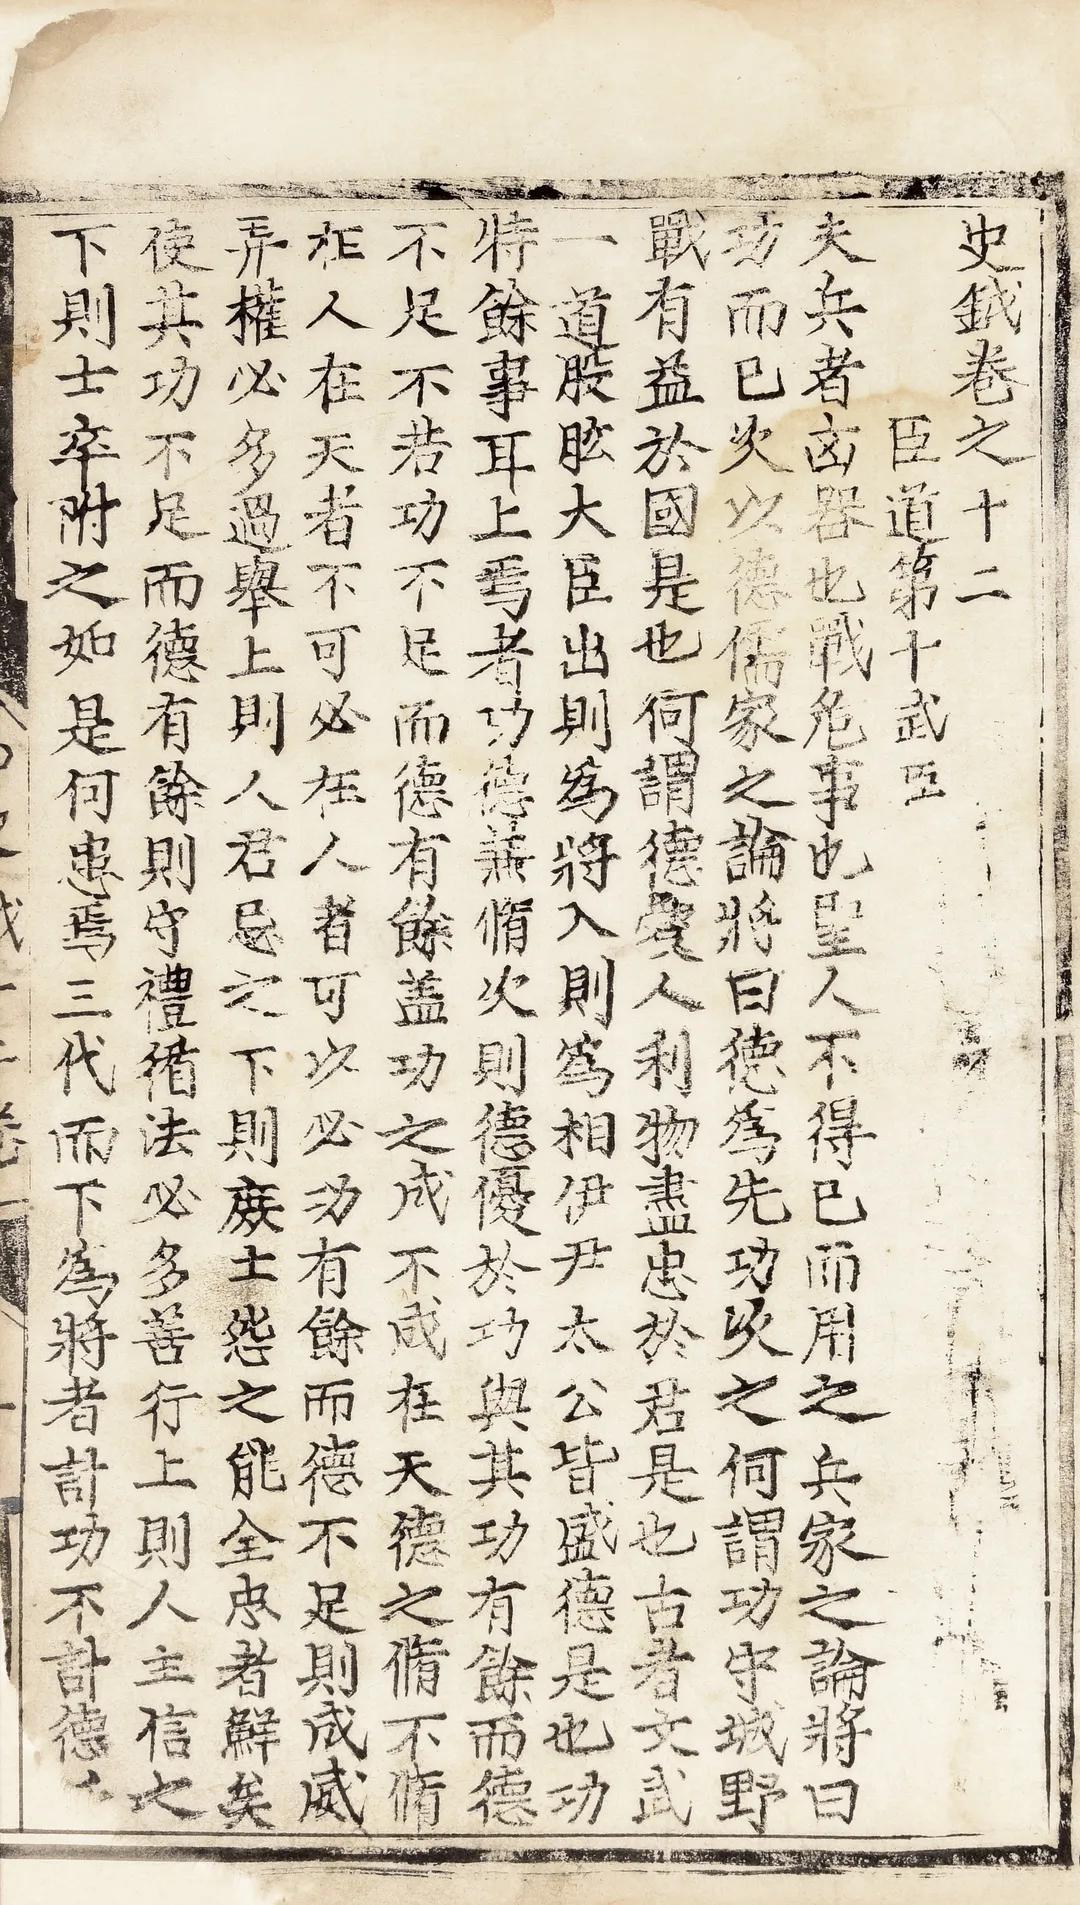 史鉞卷之十二
臣道第十武臣
夫兵者凶器也戰危事也聖人不得已而用之兵家之論將曰
功而已次以德儒家之論將曰德為先功次之何謂功守城野
戰有益於國是也何謂德愛人利物盡忠於君是也古者文武
一道股肱大臣出則為將入則為相伊尹太公皆盛德是也功
特餘事耳上焉者功德兼脩次則德優於功與其功有餘而德
不足不若功不足而德有餘盖功之成不成在天德之脩不脩
在人在天者不可必在人者可以必功有餘而德不足則成威
弄權必多過舉上則人君忌之下則庶士怨之能全忠者鮮矣
使其功不足而德有餘則守禮循法必多善行上則人主信之
下則士卒附之如是何患焉三代而下為將者計功不計德